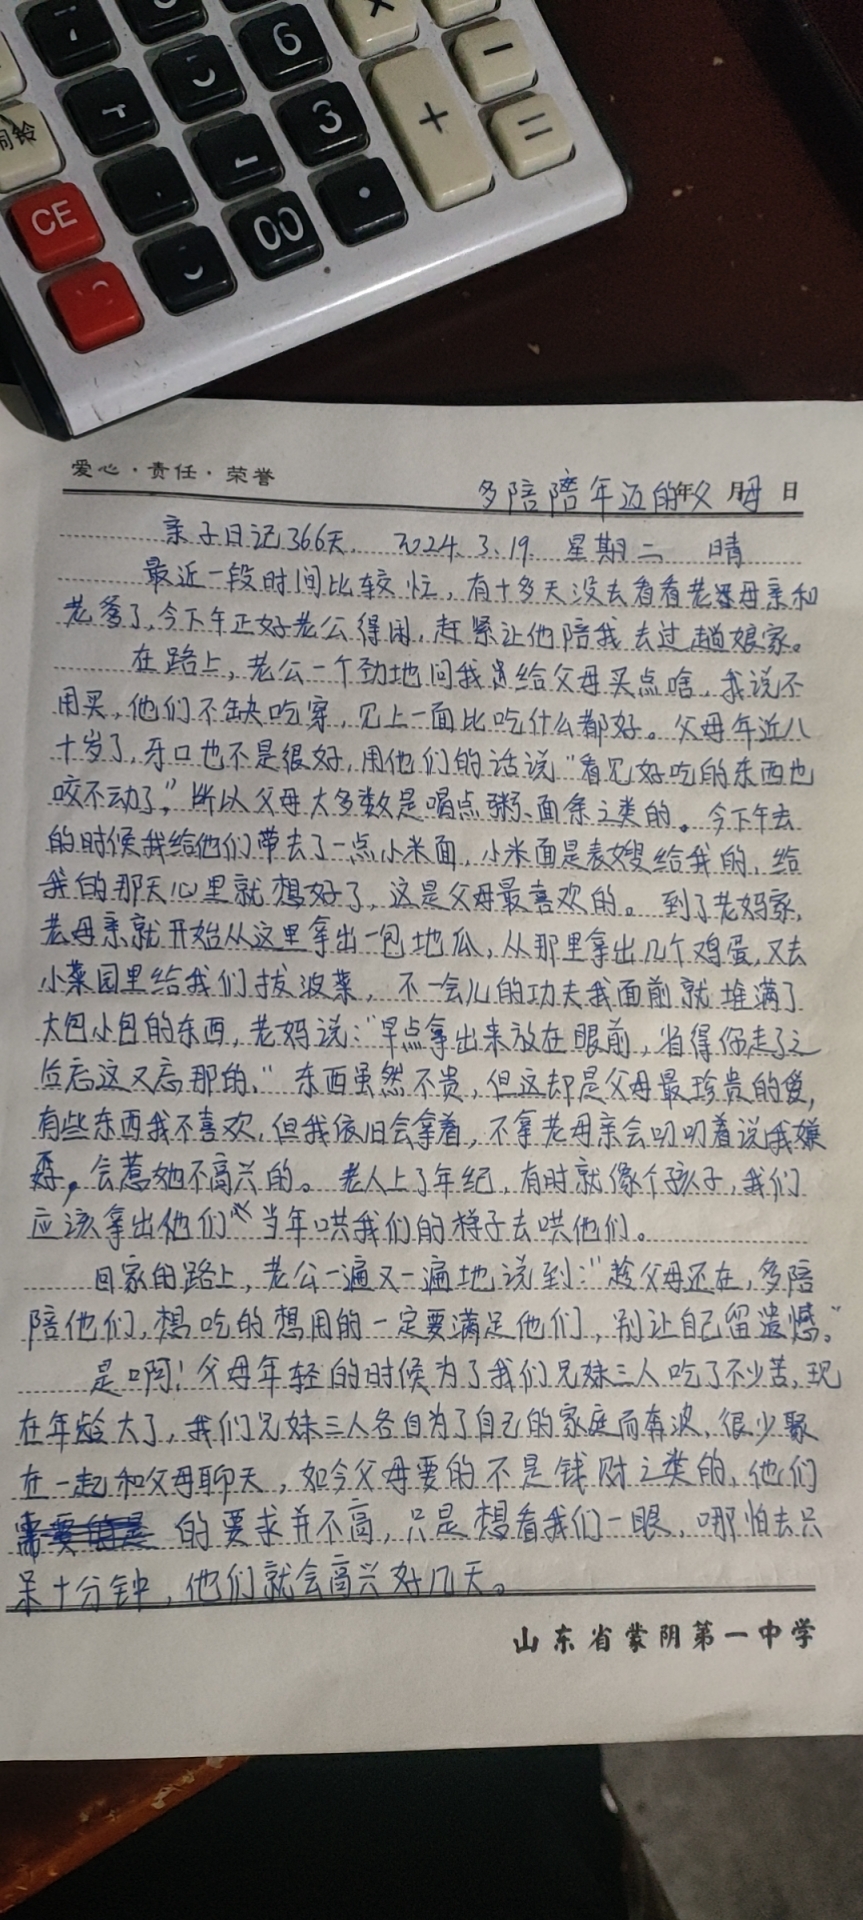 6 × −
3 + =
闹铃
CE 00 ·
爱心·责任·荣誉
多陪陪年迈的父母
年 月 日
亲子日记366天. 2024. 3. 19. 星期二 晴
最近一段时间比较忙，有十多天没去看看老母亲和
老爹了，今下午正好老公得闲，赶紧让他陪我去过趟娘家。
在路上，老公一个劲地问我给父母买点啥，我说不
用买，他们不缺吃穿，见上一面比吃什么都好。父母年近八
十岁了，牙口也不是很好，用他们的话说“看见好吃的东西也
咬不动了”，所以父母大多数是喝点粥、面条之类的。今下午去
的时候我给他们带去了一点小米面，小米面是表嫂给我的，给
我的那天心里就想好了，这是父母最喜欢的。到了老妈家，
老母亲就开始从这里拿出一包地瓜，从那里拿出几个鸡蛋，又去
小菜园里给我们拔波菜，不一会儿的功夫我面前就堆满了
大包小包的东西，老妈说：“早点拿出来放在眼前，省得你走了之
后忘这又忘那的，”东西虽然不贵，但这却是父母最珍贵的爱，
有些东西我不喜欢，但我依旧会拿着，不拿老母亲会叨叨着说我嫌
，会惹她不高兴的。老人上了年纪，有时就像个孩子，我们
应该拿出他们当年哄我们的样子去哄他们。
回家的路上，老公一遍又一遍地说到：“趁父母还在，多陪
陪他们，想吃的想用的一定要满足他们，别让自己留遗憾。”
是啊！父母年轻的时候为了我们兄妹三人吃了不少苦，现
在年龄大了，我们兄妹三人各自为了自己的家庭而奔波，很少聚
在一起和父母聊天，如今父母要的不是钱财之类的，他们
的要求并不高，只是想看我们一眼，哪怕去只
呆十分钟，他们就会高兴好几天。
山东省蒙阴第一中学